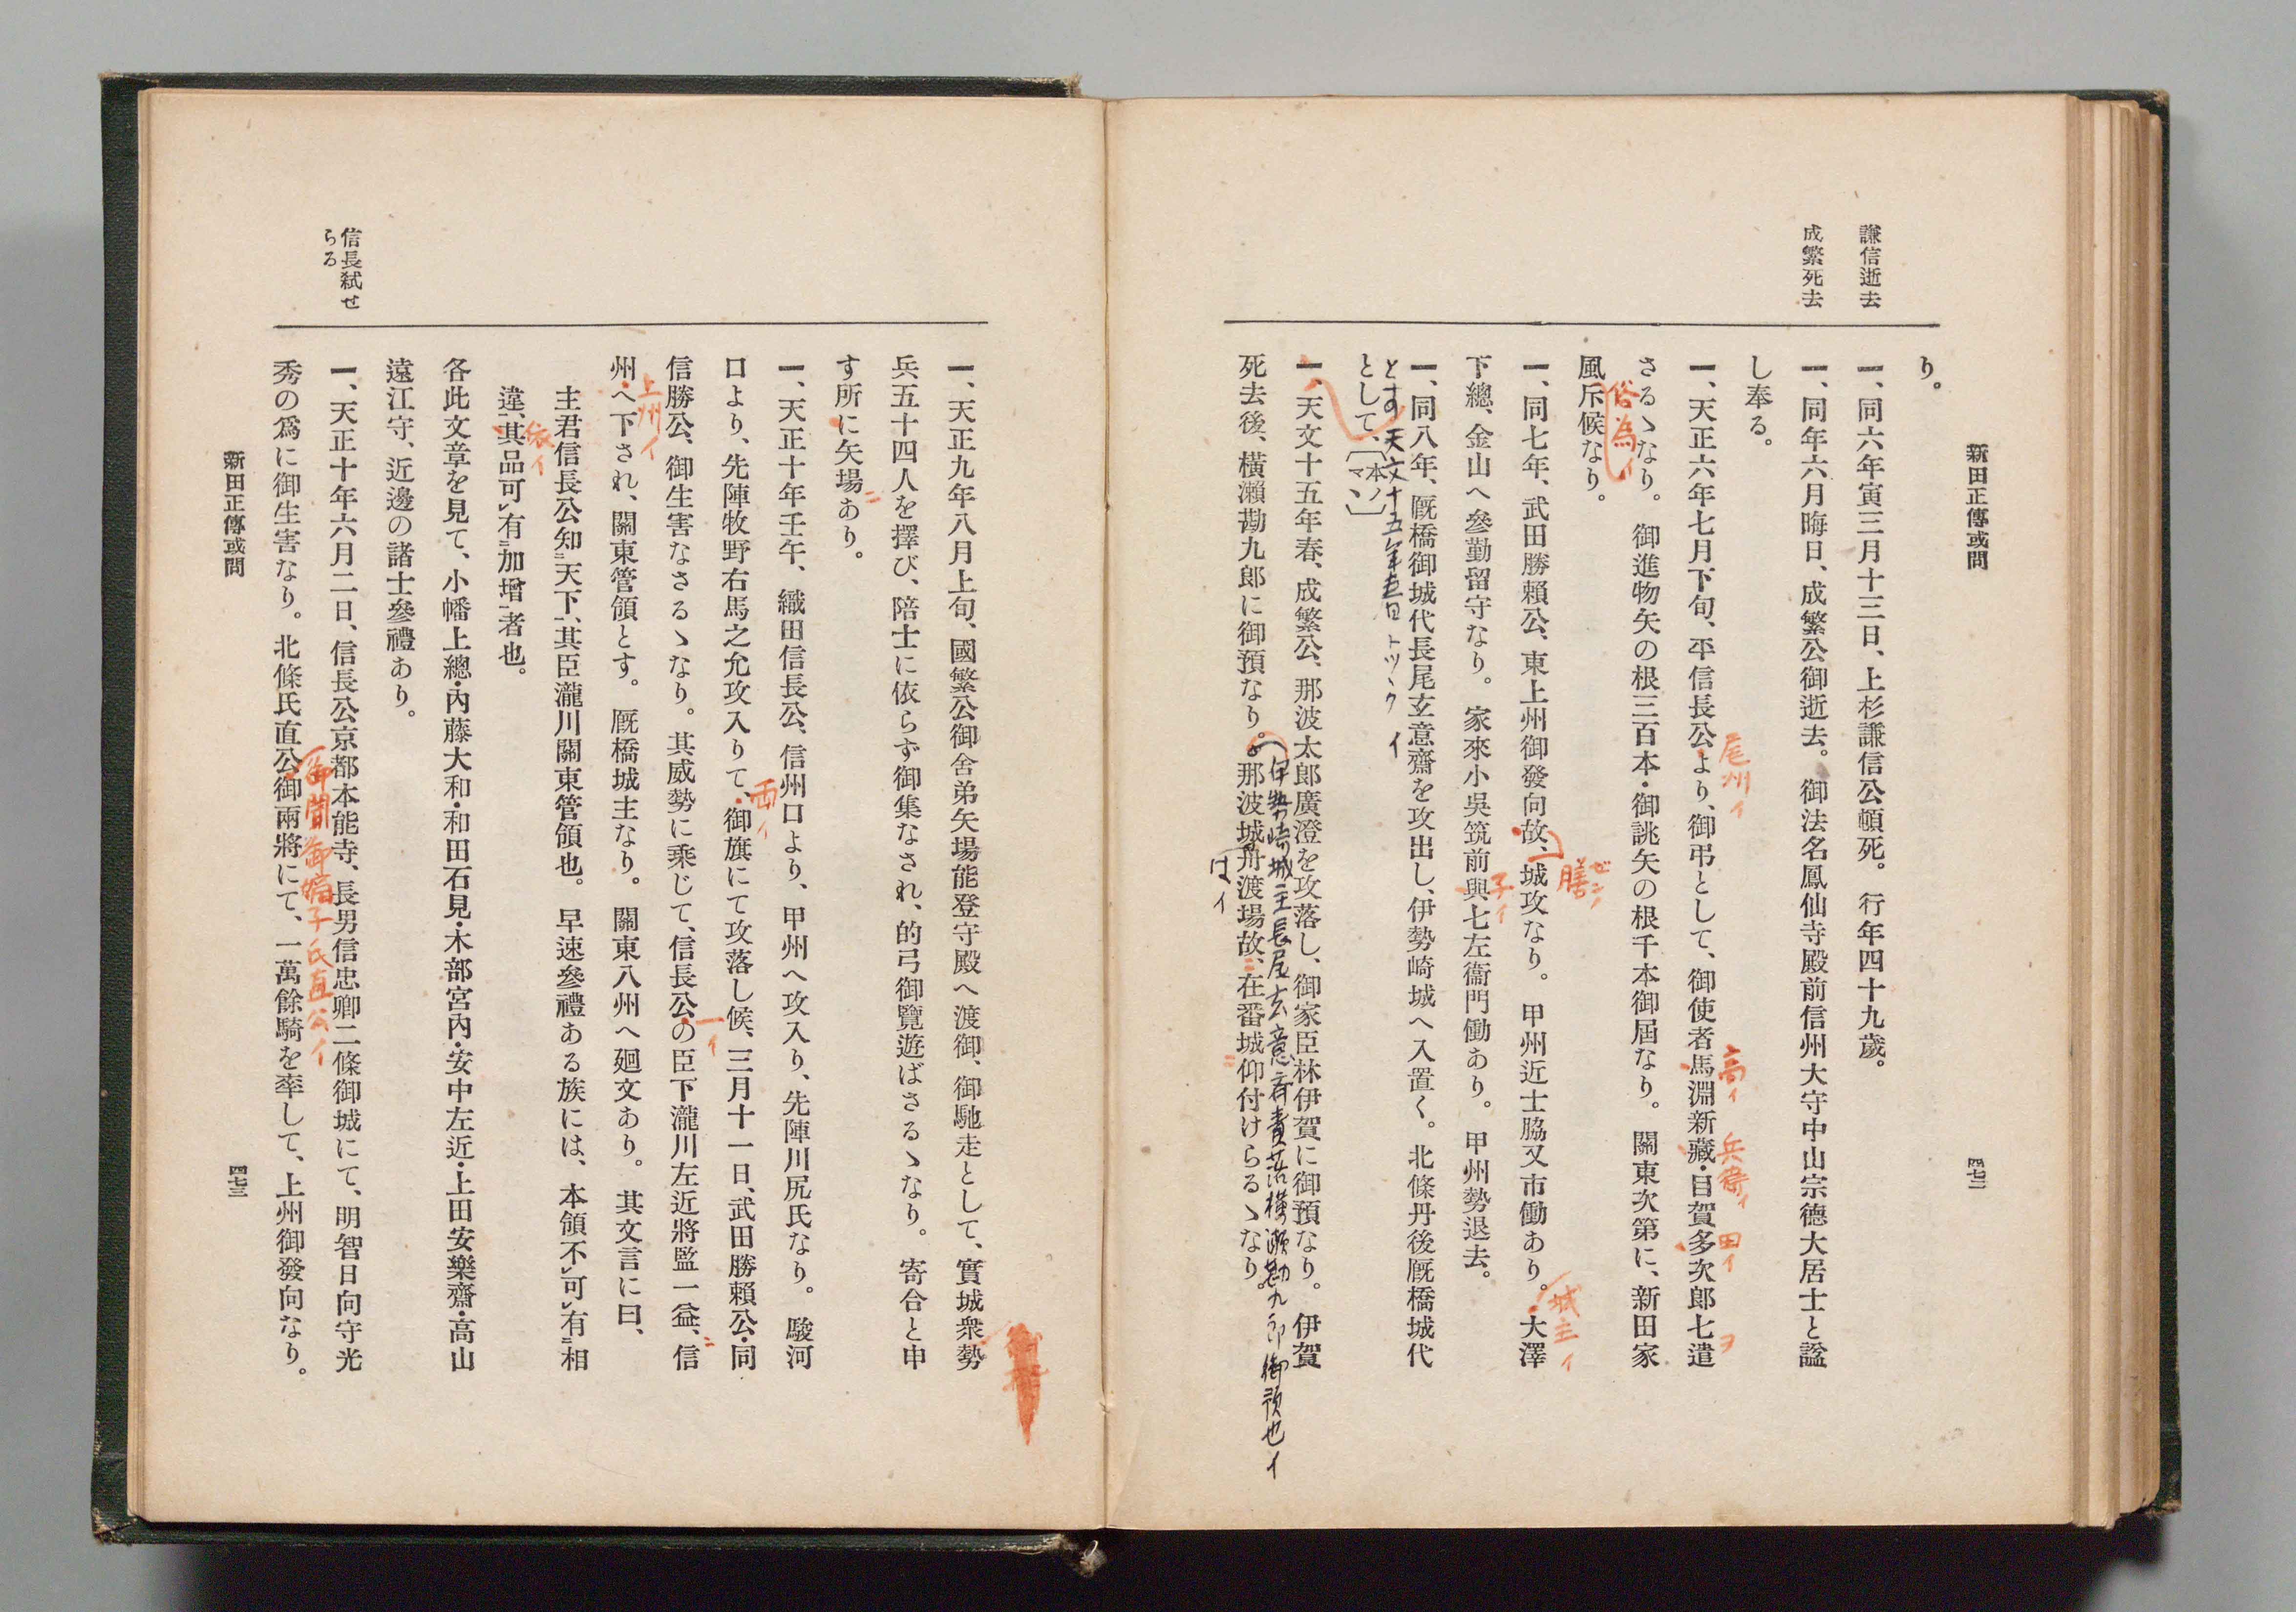 新田正傳或問
四七二
謙信逝去
成繁死去
り。
一、同六年寅三月十三日、上杉謙信公頓死。行年四十九歲。
一、同年六月晦日、成繁公御逝去。御法名鳳仙寺殿前信州大守中山宗德大居士と諡
し奉る。
一、天正六年七月下旬、平信長公より、御弔として、御使者馬淵新藏・目賀多次郎七遣
尾州イ
高イ
兵衛イ
田イ
ヲ
さるゝなり。御進物矢の根三百本・御誂矢の根千本御屆なり。關東次第に、新田家
俗為イ
風斥候なり。
一、同七年、武田勝賴公、東上州御發向故、城攻なり。甲州近士脇又市働あり。・大澤
膳
ぜンノ
城主イ
下總、金山へ參勤留守なり。家來小吳筑前與七左衞門働あり。甲州勢退去。
子イ
一、同八年、厩橋御城代長尾玄意齋を攻出し、伊勢崎城へ入置く。北條丹後厩橋城代
とす天文十五年春日トツヽクイ
として、〔本ノマヽ〕
一、天文十五年春、成繁公、那波太郎廣澄を攻落し、御家臣林伊賀に御預なり。伊賀
伊勢崎城主長尾玄意斎責落横瀬勘九郎御預也イ
死去後、橫瀨勘九郎に御預なり。那波城舟渡場故、在番城仰付けらるゝなり。
はイ
一、天正九年八月上旬、國繁公御舍弟矢場能登守殿へ渡御、御馳走として、實城衆勢
兵五十四人を擇び、陪士に依らず御集なされ、的弓御覽遊ばさるゝなり。寄合と申
す所に矢場あり。
ニ
一、天正十年壬午、織田信長公、信州口より、甲州へ攻入り、先陣川尻氏なり。駿河
口より、先陣牧野右馬之允攻入りて、御旗にて攻落し候、三月十一日、武田勝賴公・同
両イ
信勝公、御生害なさるゝなり。其威勢に乘じて、信長公の臣下瀧川左近將監一益、信
一イ
ニ
州へ下され、關東管領とす。厩橋城主なり。關東八州へ廻文あり。其文言に曰、
上州イ
主君信長公知二天下一、其臣瀧川關東管領也。早速參禮ある族には、本領不レ可レ有二相
違一、其品可レ有二加增一者也。
依イ
各此文章を見て、小幡上總・內藤大和・和田石見・木部宮內・安中左近・上田安樂齋・高山
遠江守、近邊の諸士參禮あり。
一、天正十年六月二日、信長公京都本能寺、長男信忠卿二條御城にて、明智日向守光
御聞御嫡子氏直公イ
秀の爲に御生害なり。北條氏直公御兩將にて、一萬餘騎を率して、上州御發向なり。
信長弑せ
らる
新田正傳或問
四七三